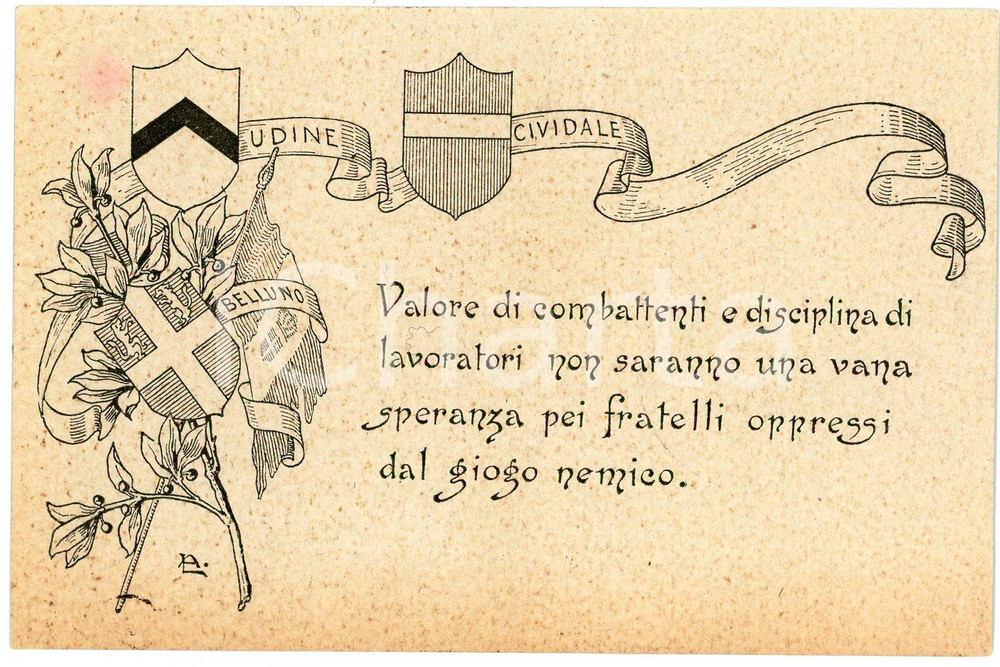 UDINE
CIVIDALE
BELLUNO
Valore di combattenti e disciplina di
lavoratori non saranno una vana
speranza pei fratelli oppressi
dal giogo nemico.
Charta